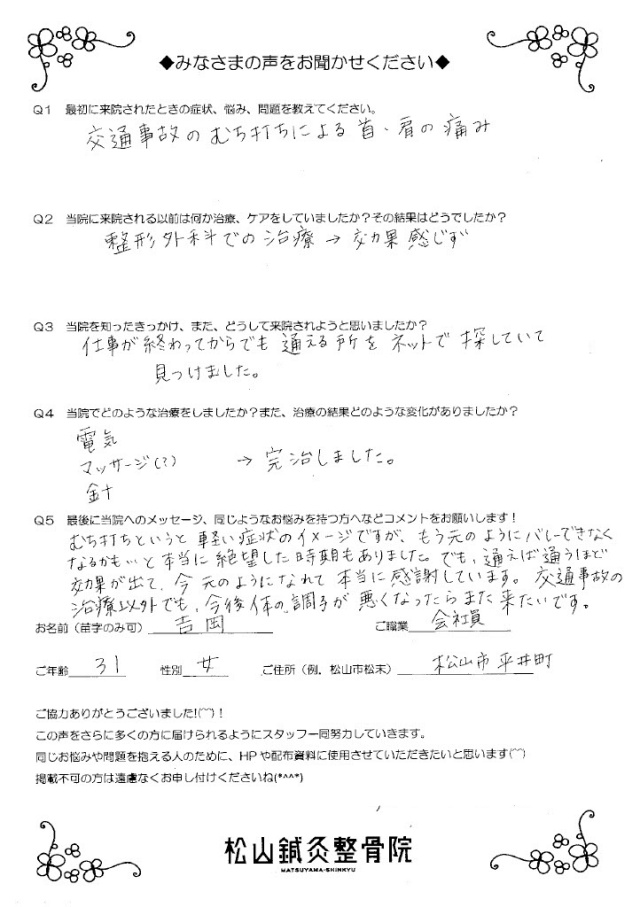 ◆みなさまの声をお聞かせください◆
Q1　最初に来院されたときの症状、悩み、問題を教えてください。
交通事故のむち打ちによる首・肩の痛み
Q2　当院に来院される以前は何か治療、ケアをしていましたか？その結果はどうでしたか？
整形外科での治療→効果感じず
Q3　当院を知ったきっかけ、また、どうして来院されようと思いましたか？
仕事が終わってからでも通える所をネットで探していて
見つけました。
Q4　当院でどのような治療をしましたか？また、治療の結果どのような変化がありましたか？
電気
マッサージ(？)　→完治しました。
針
Q5　最後に当院へのメッセージ、同じようなお悩みを持つ方へなどコメントをお願いします！
むち打ちというと軽い症状のイメージですが、もう元のようにバレーできなく
なるかも…と本当に絶望した時期もありました。でも、通えば通うほど
効果が出て、今元のようになれて本当に感謝しています。交通事故の
治療以外でも、今後体の調子が悪くなったらまた来たいです。
お名前（苗字のみ可）吉岡　ご職業　会社員
ご年齢　31　性別　女　ご住所（例．松山市松末）松山市平井町
ご協力ありがとうございました!(⌒⌒)！
この声をさらに多くの方に届けられるようにスタッフ一同努力していきます。
同じお悩みや問題を抱える人のために、HPや配布資料に使用させていただきたいと思います(⌒⌒)
掲載不可の方は遠慮なくお申し付けくださいね(*^^*)
松山鍼灸整骨院
MATSUYAMA-SHINKYU